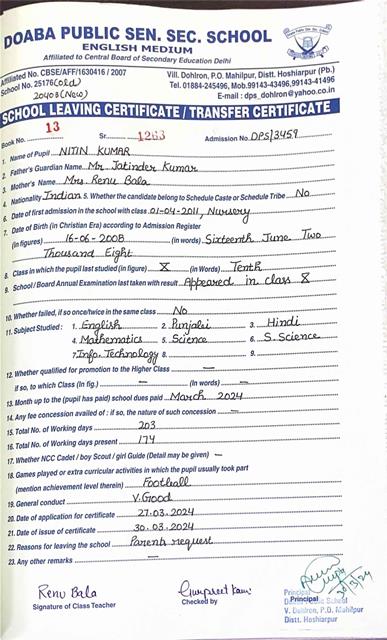 DOABA PUBLIC SEN. SEC. SCHOOL
ENGLISH MEDIUM
Affiliated to Central Board of Secondary Education Delhi
Affiliated No. CBSE/AFF/1630416 / 2007
School No. 25176 (Old)
20408 (New)
Vill. Dohlron, P.O. Mahilpur, Distt. Hoshiarpur (Pb.)
Tel. 01884-245496, Mob.99143-43496, 99143-41496
E-mail : dps_dohlron@yahoo.co.in
SCHOOL LEAVING CERTIFICATE / TRANSFER CERTIFICATE
Book No. 13 Sr. 1263 Admission No. DPS/3459
1. Name of Pupil NITIN KUMAR
2. Father's Guardian Name Mr. Jatinder Kumar
3. Mother's Name Mrs. Renu Bala
4. Nationality Indian 5. Whether the candidate belong to Schedule Caste or Schedule Tribe No
6. Date of first admission in the school with class 01-04-2011, Nursery
7. Date of Birth (in Christian Era) according to Admission Register
(in figures) 16-06-2008 (in words) Sixteenth June Two
Thousand Eight
8. Class in which the pupil last studied (in figure) X (in Words) Tenth
9. School/Board Annual Examination last taken with result Appeared in class X
10. Whether failed, if so once/twice in the same class No
11. Subject Studied : 1. English 2. Punjabi 3. Hindi
4. Mathematics 5. Science 6. S. Science
7. Info. Technology 8. 9.
12. Whether qualified for promotion to the Higher Class —
if so, to which Class (In fig.) — (In words) —
13. Month up to the (pupil has paid) school dues paid March 2024
14. Any fee concession availed of : if so, the nature of such concession —
15. Total No. of Working days 203
16. Total No. of Working days present 174
17. Whether NCC Cadet / boy Scout / girl Guide (Detail may be given) —
18. Games played or extra curricular activities in which the pupil usually took part
(mention achievement level therein) Football
19. General conduct V.Good
20. Date of application for certificate 27.03.2024
21. Date of issue of certificate 30.03.2024
22. Reasons for leaving the school Parents request
23. Any other remarks —
Renu Bala
Signature of Class Teacher
Gurpreet Kaur
Checked by
30/3/24
Principal
Principal
Doaba Public School
V. Dohlron, P.O. Mahilpur
Distt. Hoshiarpur